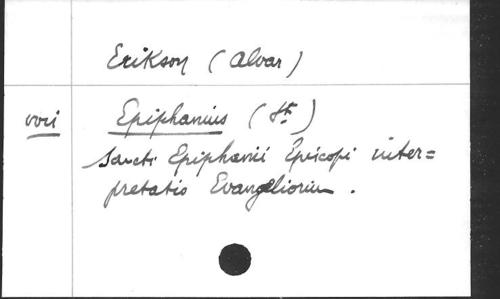 Erikson (Alvar)
voir Epiphanius (St)
Sancti Epiphanii Episcopi inter=
pretatio Evangeliorum.